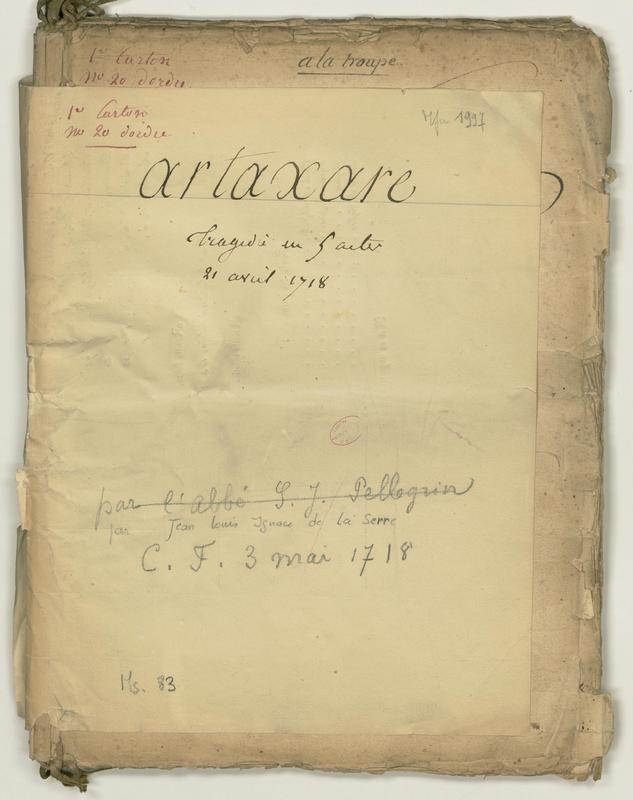 1er Carton
no 20 dordre
a la troupe
1er Carton
no 20 dordre
1997
artaxare
Tragedie en 5 actes
21 avril 1718
par l'abbé S. J. Pellegrin
par Jean Louis Ignace de la Serre
C. F. 3 mai 1718
Ms. 83